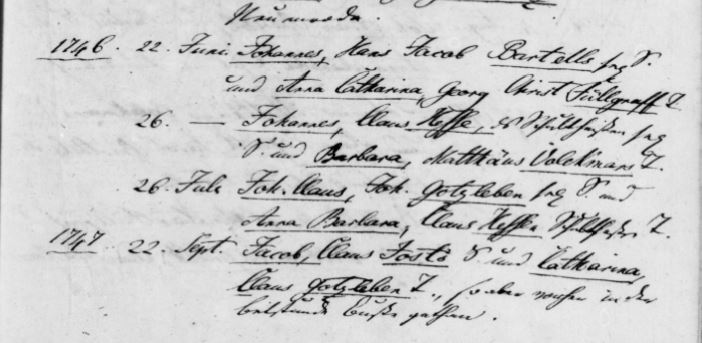 Neumorsch.
1746. 22. Juni Johannes, Hans Jacob Bartells sel. S.
und Anna Catharina, Georg Christ Füllgraff T.
26. — Johannes, Claus Hesse, des Schultheißen sel.
S. und Barbara, Matthäus Volckmars T.
26. Juli Joh. Claus, Joh. Gotzleben sel. S. und
Anna Barbara, Claus Hessen Schultheißen T.
1747 22. Sept. Jacob, Claus Josts S. und Catharina,
Claus Gotzleben T., so aber vorher in der
betstunde Buße gethan.